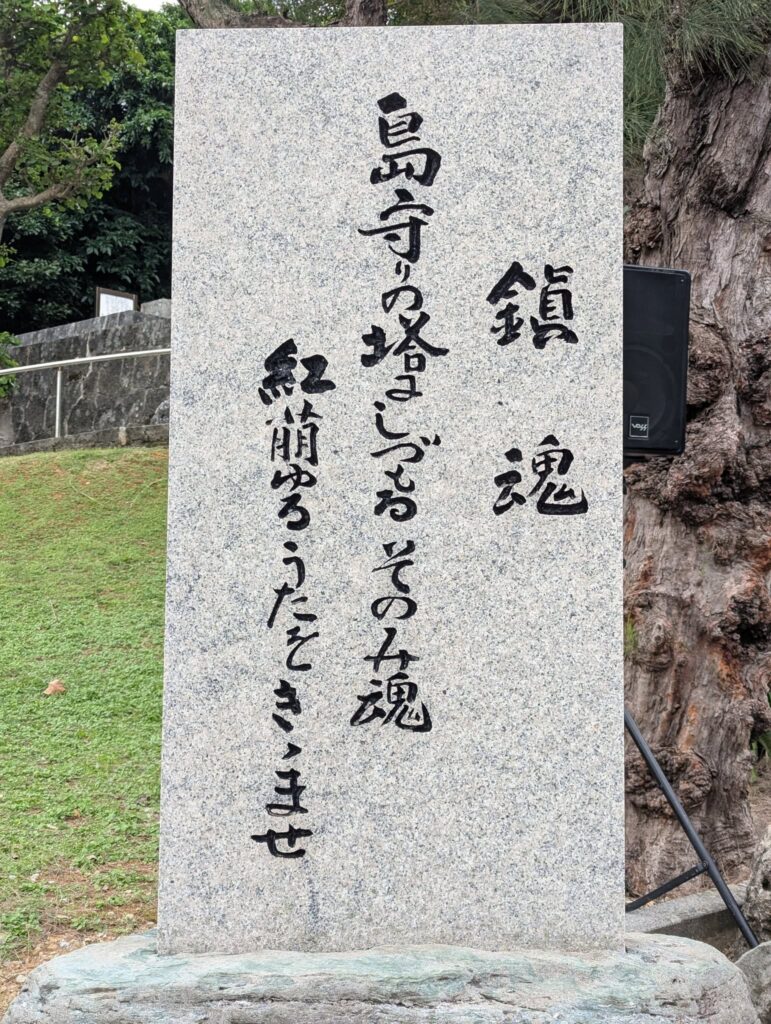 鎮魂
島守りの塔にしづもるそのみ魂
紅萠ゆるうたをきゝませ
voss